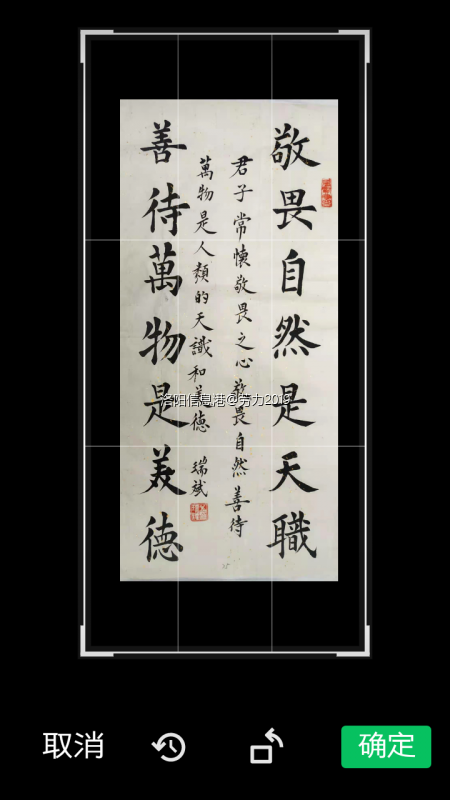 敬畏自然是天職
君子常懷敬畏之心敬畏自然善待
萬物是人類的天識和美德 瑞斌
善待萬物是美德
洛阳信息港@劳力2019
取消
确定